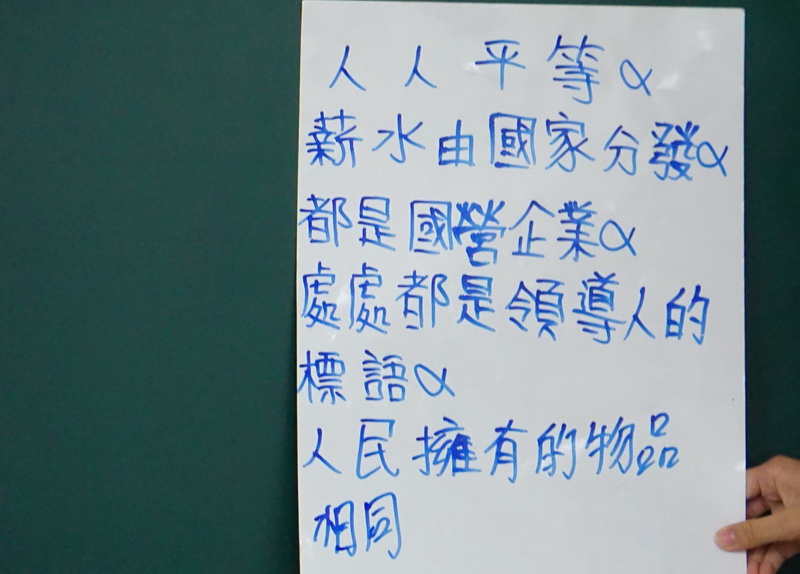 人人平等α
薪水由國家分發α
都是國營企業α
處處都是領導人的
標語α
人民擁有的物品
相同